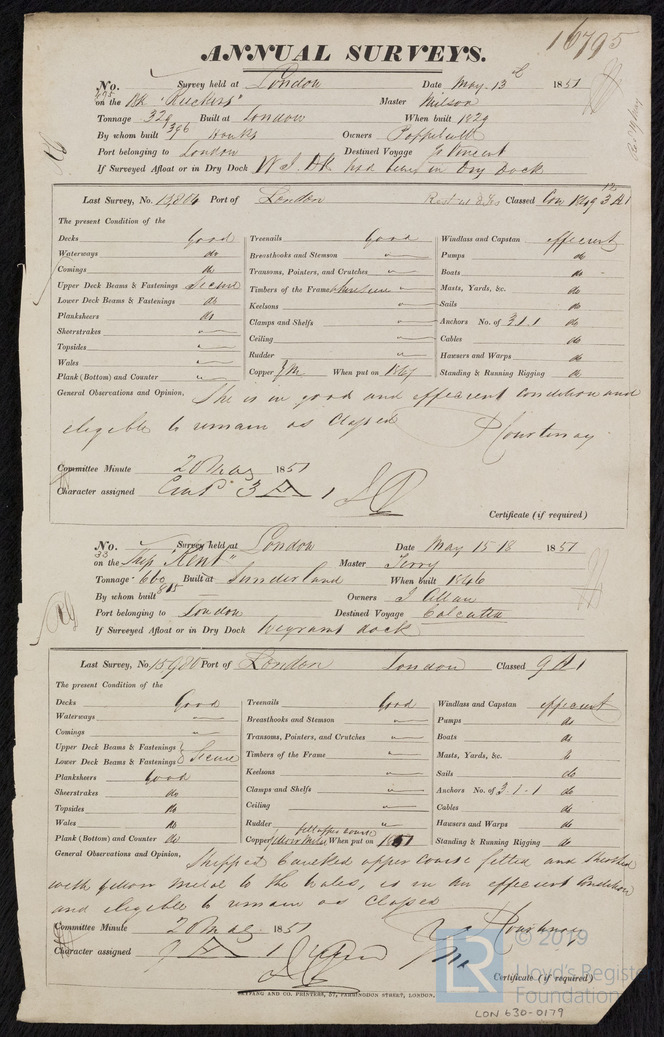 16795
ANNUAL SURVEYS.
No. 675 Survey held at London Date May 13th 1851
on the BK "Ruckers" Master Milson
Tonnage 329 396 Built at London When built 1829
By whom built Owners
Port belonging to London Destined Voyage St Vincent
If Surveyed Afloat or in Dry Dock W. I. DK had been in Dry Dock
Last Survey, No. 13806 Port of London Classed 3 A 1
The present Condition of the
Decks Good
Waterways do
Comings do
Upper Deck Beams & Fastenings Secure
Lower Deck Beams & Fastenings do
Planksheers do
Sheerstrakes "
Topsides "
Wales "
Plank (Bottom) and Counter "
Treenails Good
Breasthooks and Stemson "
Transoms, Pointers, and Crutches "
Timbers of the Frame where seen "
Keelsons "
Clamps and Shelfs "
Ceiling "
Rudder "
Copper When put on
Windlass and Capstan efficient
Pumps do
Boats do
Masts, Yards, &c. do
Sails do
Anchors No. of 3.1.1 do
Cables do
Hawsers and Warps do
Standing & Running Rigging do
General Observations and Opinion, She is in good and efficient condition and
eligible to remain as Classed
P Courtenay
Committee Minute 20 May 1851
Character assigned 3 A 1
Certificate (if required)
No. 33 Survey held at London Date May 15 18 1851
on the Ship "Kent" Master Terry
Tonnage 660 815 Built at Sunderland When built 1846
By whom built — Owners J Allan
Port belonging to London Destined Voyage Calcutta
If Surveyed Afloat or in Dry Dock Wigrams dock
Last Survey, No. 15980 Port of London London Classed 9 A 1
The present Condition of the
Decks Good
Waterways "
Comings "
Upper Deck Beams & Fastenings
Lower Deck Beams & Fastenings Secure
Planksheers Good
Sheerstrakes do
Topsides do
Wales do
Plank (Bottom) and Counter do
Treenails Good
Breasthooks and Stemson "
Transoms, Pointers, and Crutches "
Timbers of the Frame "
Keelsons "
Clamps and Shelfs "
Ceiling "
Rudder "
felt upper course
Copper yellow Metal When put on 1851
Windlass and Capstan efficient
Pumps do
Boats do
Masts, Yards, &c. do
Sails do
Anchors No. of 3.1.1 do
Cables do
Hawsers and Warps do
Standing & Running Rigging do
General Observations and Opinion, Stripped Caulked upper course felted and sheathed
with yellow metal to the wales, is in an efficient Condition
and eligible to remain as Classed
P Courtenay
Committee Minute 20 May 1851
Character assigned 9 A 1
Certificate (if required)
AND CO. PRINTERS, 57, FARRINGDON STREET, LONDON.
LR © 2019
Lloyd's Register
Foundation
LON 630-0179